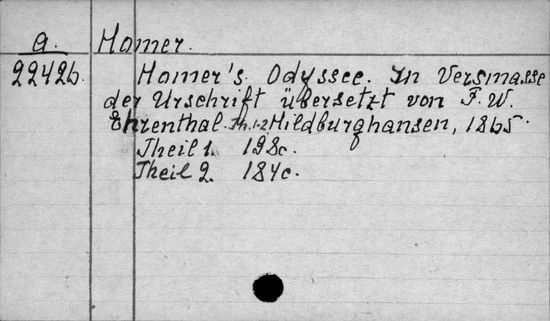 a. Homer.
22426. Homer's Odyssee. In Versmasse
der Urschrift übersetzt von F. W.
Ehrenthal. Th. 1-2 Hildburghausen, 1865.
Theil 1. 198c.
Theil 2. 184c.